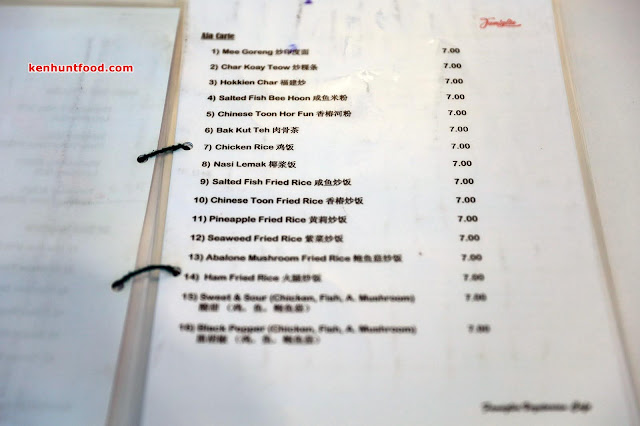 Famiglia
kenhuntfood.com
Ala Carte
1) Mee Goreng 炒印度面 7.00
2) Char Koay Teow 炒粿条 7.00
3) Hokkien Char 福建炒 7.00
4) Salted Fish Bee Hoon 咸鱼米粉 7.00
5) Chinese Toon Hor Fun 香椿河粉 7.00
6) Bak Kut Teh 肉骨茶 7.00
7) Chicken Rice 鸡饭 7.00
8) Nasi Lemak 椰浆饭 7.00
9) Salted Fish Fried Rice 咸鱼炒饭 7.00
10) Chinese Toon Fried Rice 香椿炒饭 7.00
11) Pineapple Fried Rice 黄莉炒饭 7.00
12) Seaweed Fried Rice 紫菜炒饭 7.00
13) Abalone Mushroom Fried Rice 鲍鱼菇炒饭 7.00
14) Ham Fried Rice 火腿炒饭 7.00
15) Sweet & Sour (Chicken, Fish, A. Mushroom) 7.00
酸甜（鸡，鱼，鲍鱼菇）
16) Black Pepper (Chicken, Fish, A. Mushroom) 7.00
黑胡椒（鸡，鱼，鲍鱼菇）
Famiglia Vegetarian Cafe